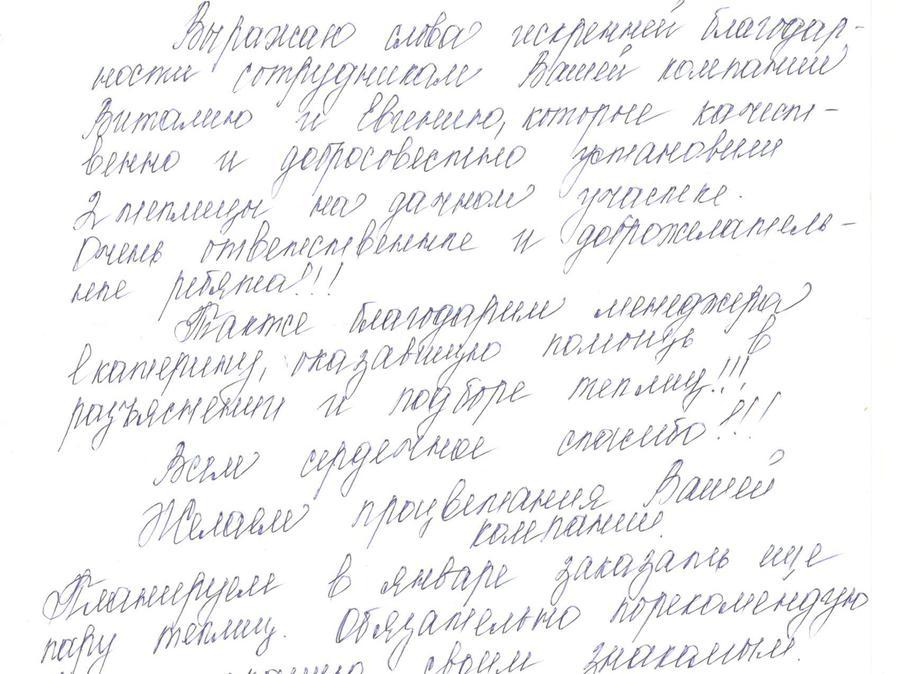 Выражаю слова искренней благодар-
ности сотрудникам Вашей компании
Виталию и Евгению, которые качест-
венно и добросовестно установили
2 теплицы на дачном участке.
Очень ответственные и доброжелатель-
ные ребята!!!
Также благодарим менеджера
Екатерину, оказавшую помощь в
разъяснении и подборе теплиц!!!
Всем сердечное спасибо!!!
Желаем процветания Вашей
компании.
Планируем в январе заказать еще
пару теплиц. Обязательно порекомендую
своим знакомым.